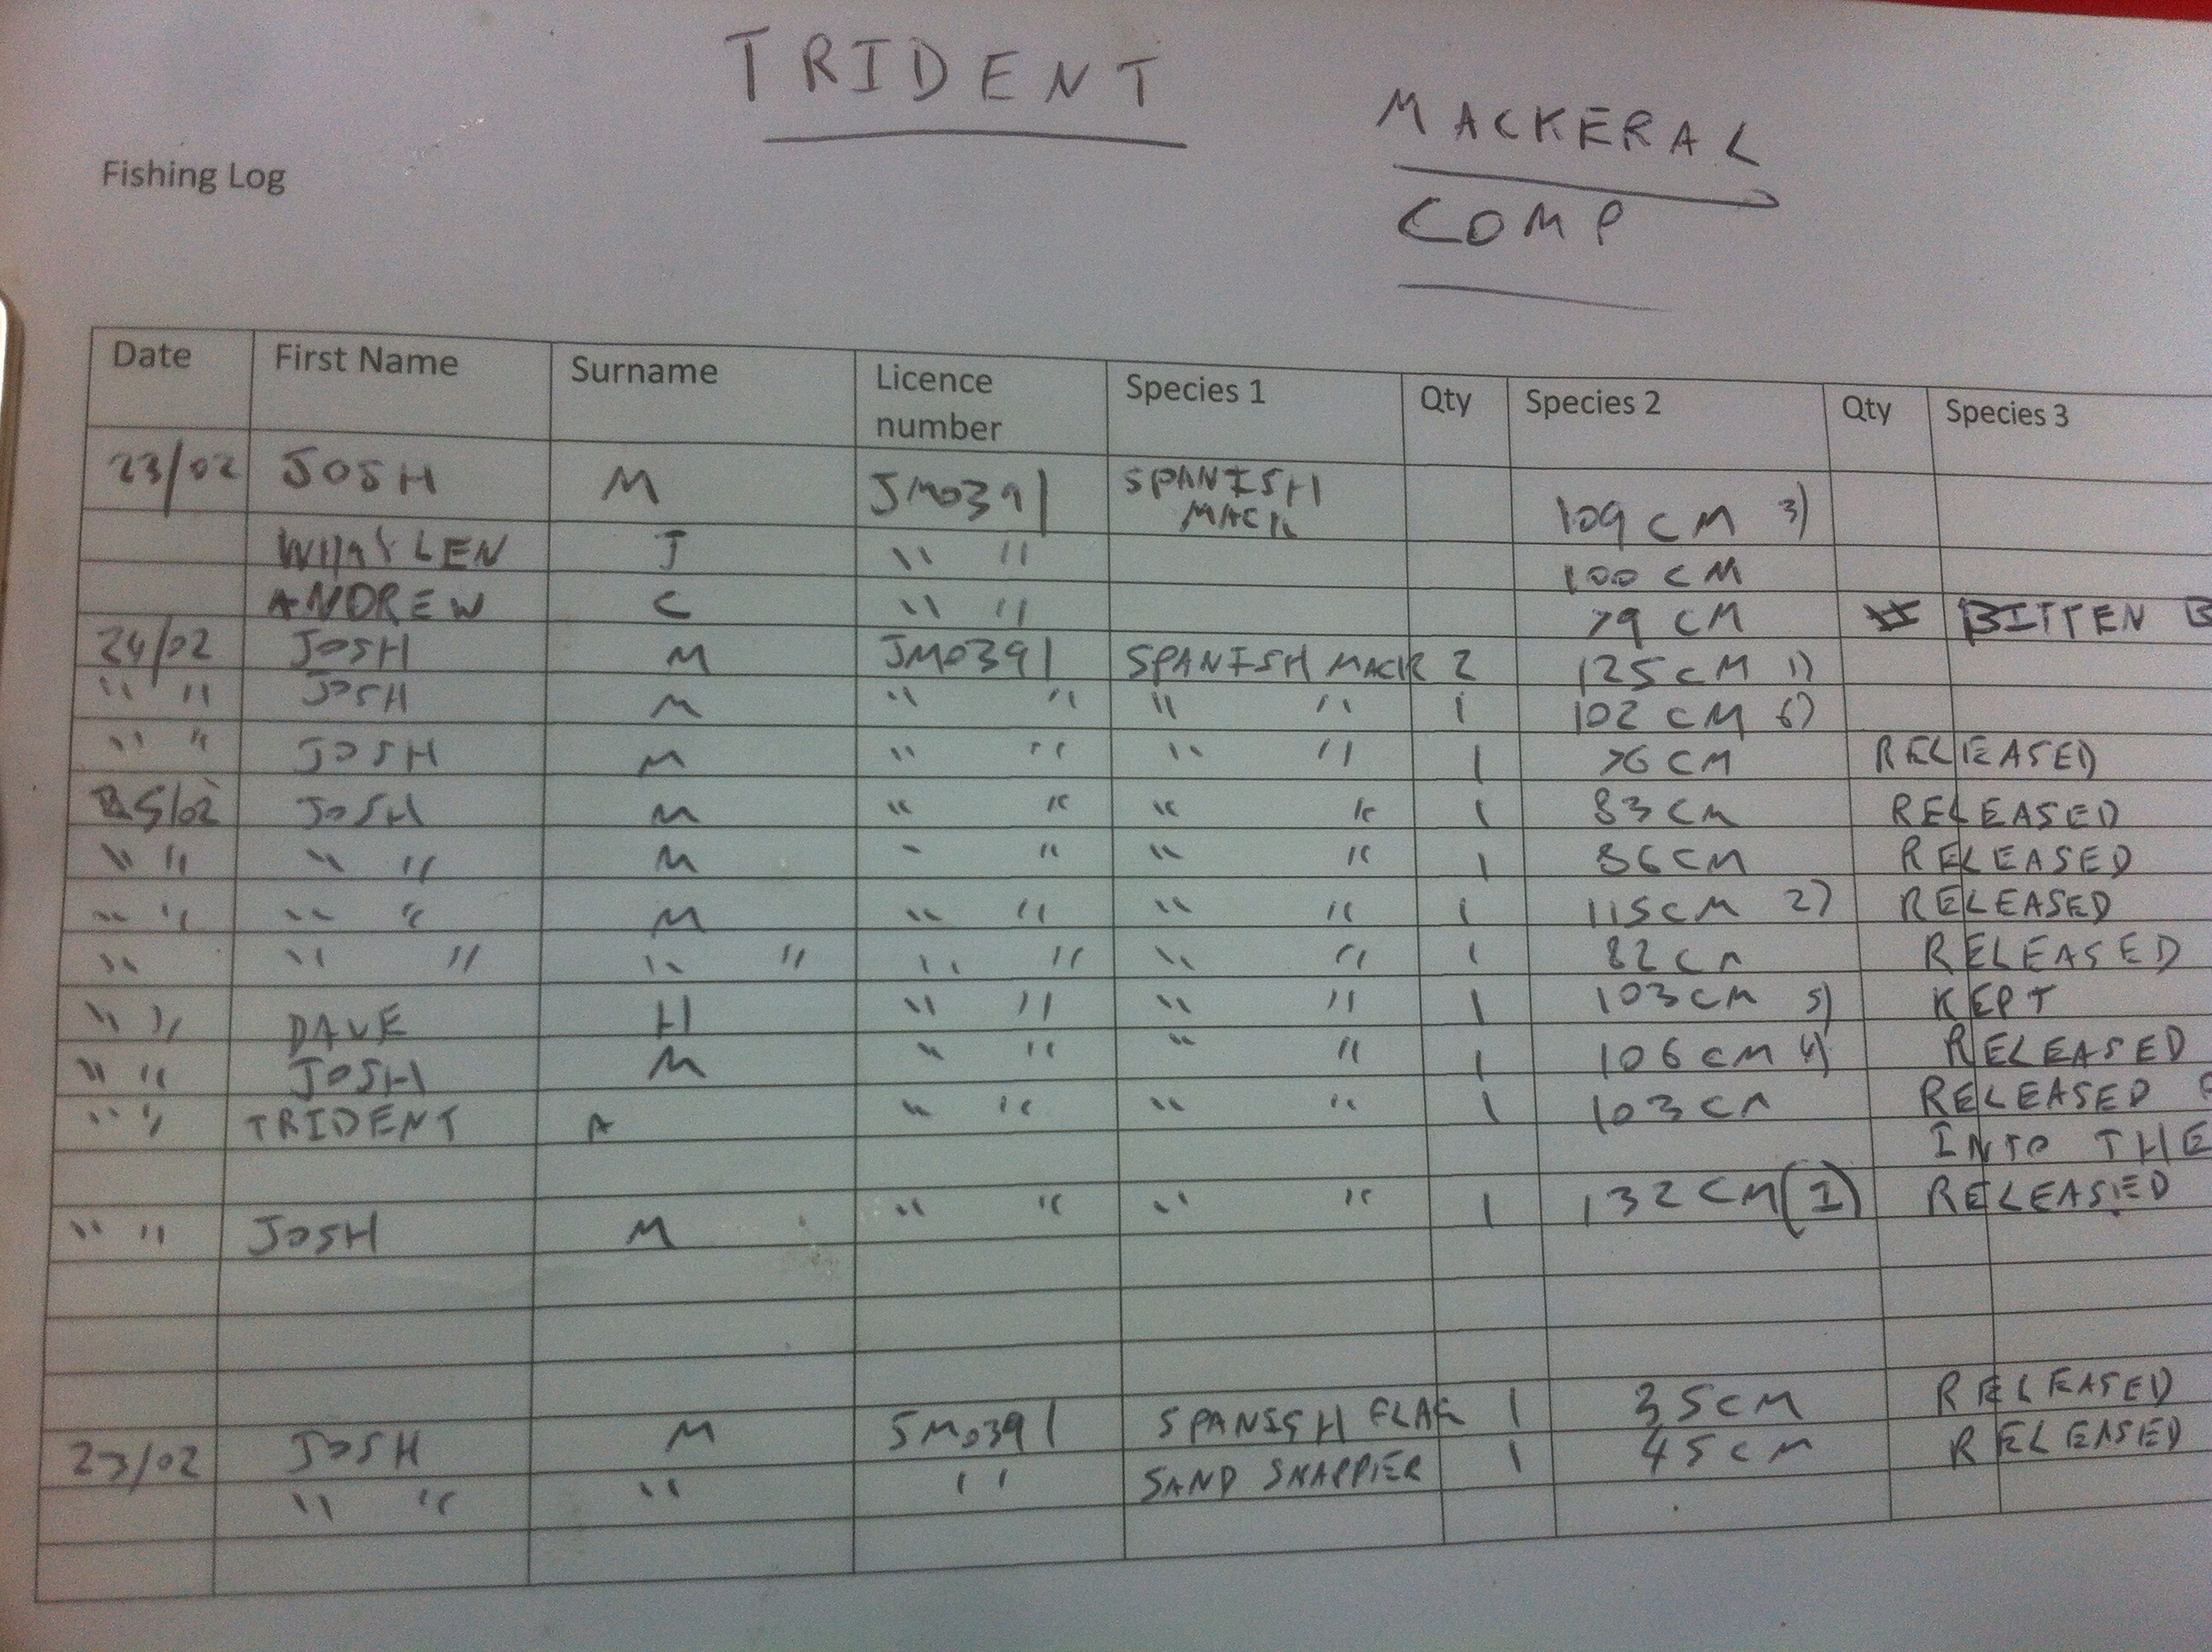 TRIDENT
MACKERAL
COMP
Fishing Log
Date First Name Surname Licence number Species 1 Qty Species 2 Qty Species 3
23/02 JOSH M JM0391 SPANISH MACK 109 CM 3)
J " " 100 CM
ANDREW C " " 79 CM BITTEN B
24/02 JOSH M JM0391 SPANISH MACK 2 125 CM 1)
" " JOSH M " " " " 1 102 CM 6)
" " JOSH M " " " " 1 76 CM RELEASED
25/02 JOSH M " " " " 1 83 CM RELEASED
" " " " M " " " " 1 86 CM RELEASED
" " " " M " " " " 1 115 CM 2) RELEASED
" " " " " " " " " 1 82 CM RELEASED
" " DAVE H " " " " 1 103 CM 5) KEPT
" " JOSH M " " " " 1 106 CM 4) RELEASED
" " TRIDENT A " " " " 1 103 CM RELEASED
INTO THE
" " JOSH M " " " " 1 132 CM (1) RELEASED
23/02 JOSH M JM0391 SPANISH FLAG 1 35 CM RELEASED
" " " " " SAND SNAPPIER 1 45 CM RELEASED